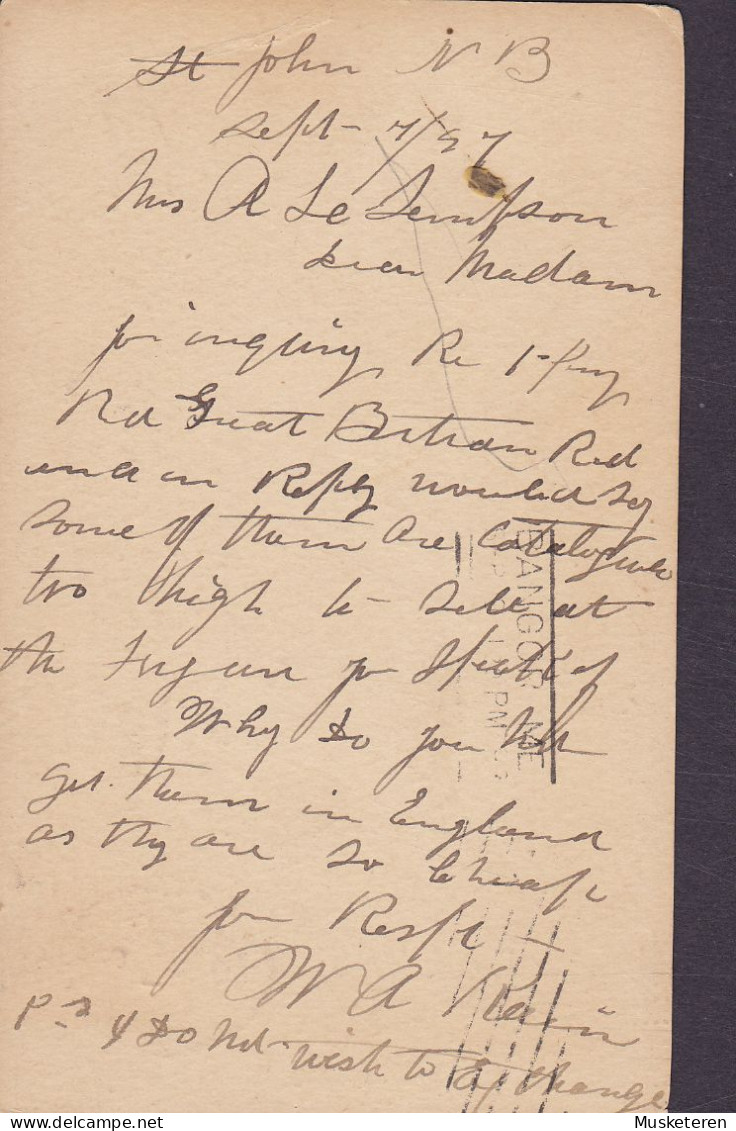 St John N B
Sept - 7/97
Mrs A Le Simpson
Dear Madam
for inquiry Re 1-
Red Great Red
and in Reply would say
some of them are Catalogued
too high to sell at
the figure you speak of
Why Do you Not
get them in England
as they are so Cheap
your Resp
W A
P S I Do Not wish to Exchange
BANGOR ME
PM
Musketeren